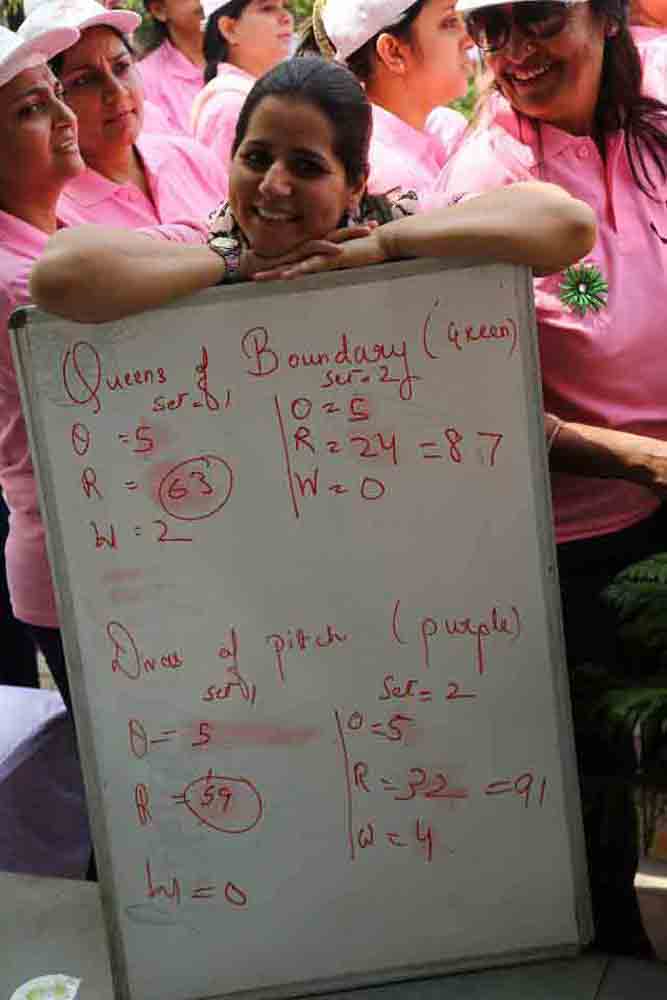 Queens of Boundary (Green)
set = 1
O = 5
R = 63
W = 2
set = 2
O = 5
R = 24 = 87
W = 0
Divas of pitch (purple)
set 1
O = 5
R = 59
W = 0
Set = 2
O = 5
R = 32 = 91
W = 4